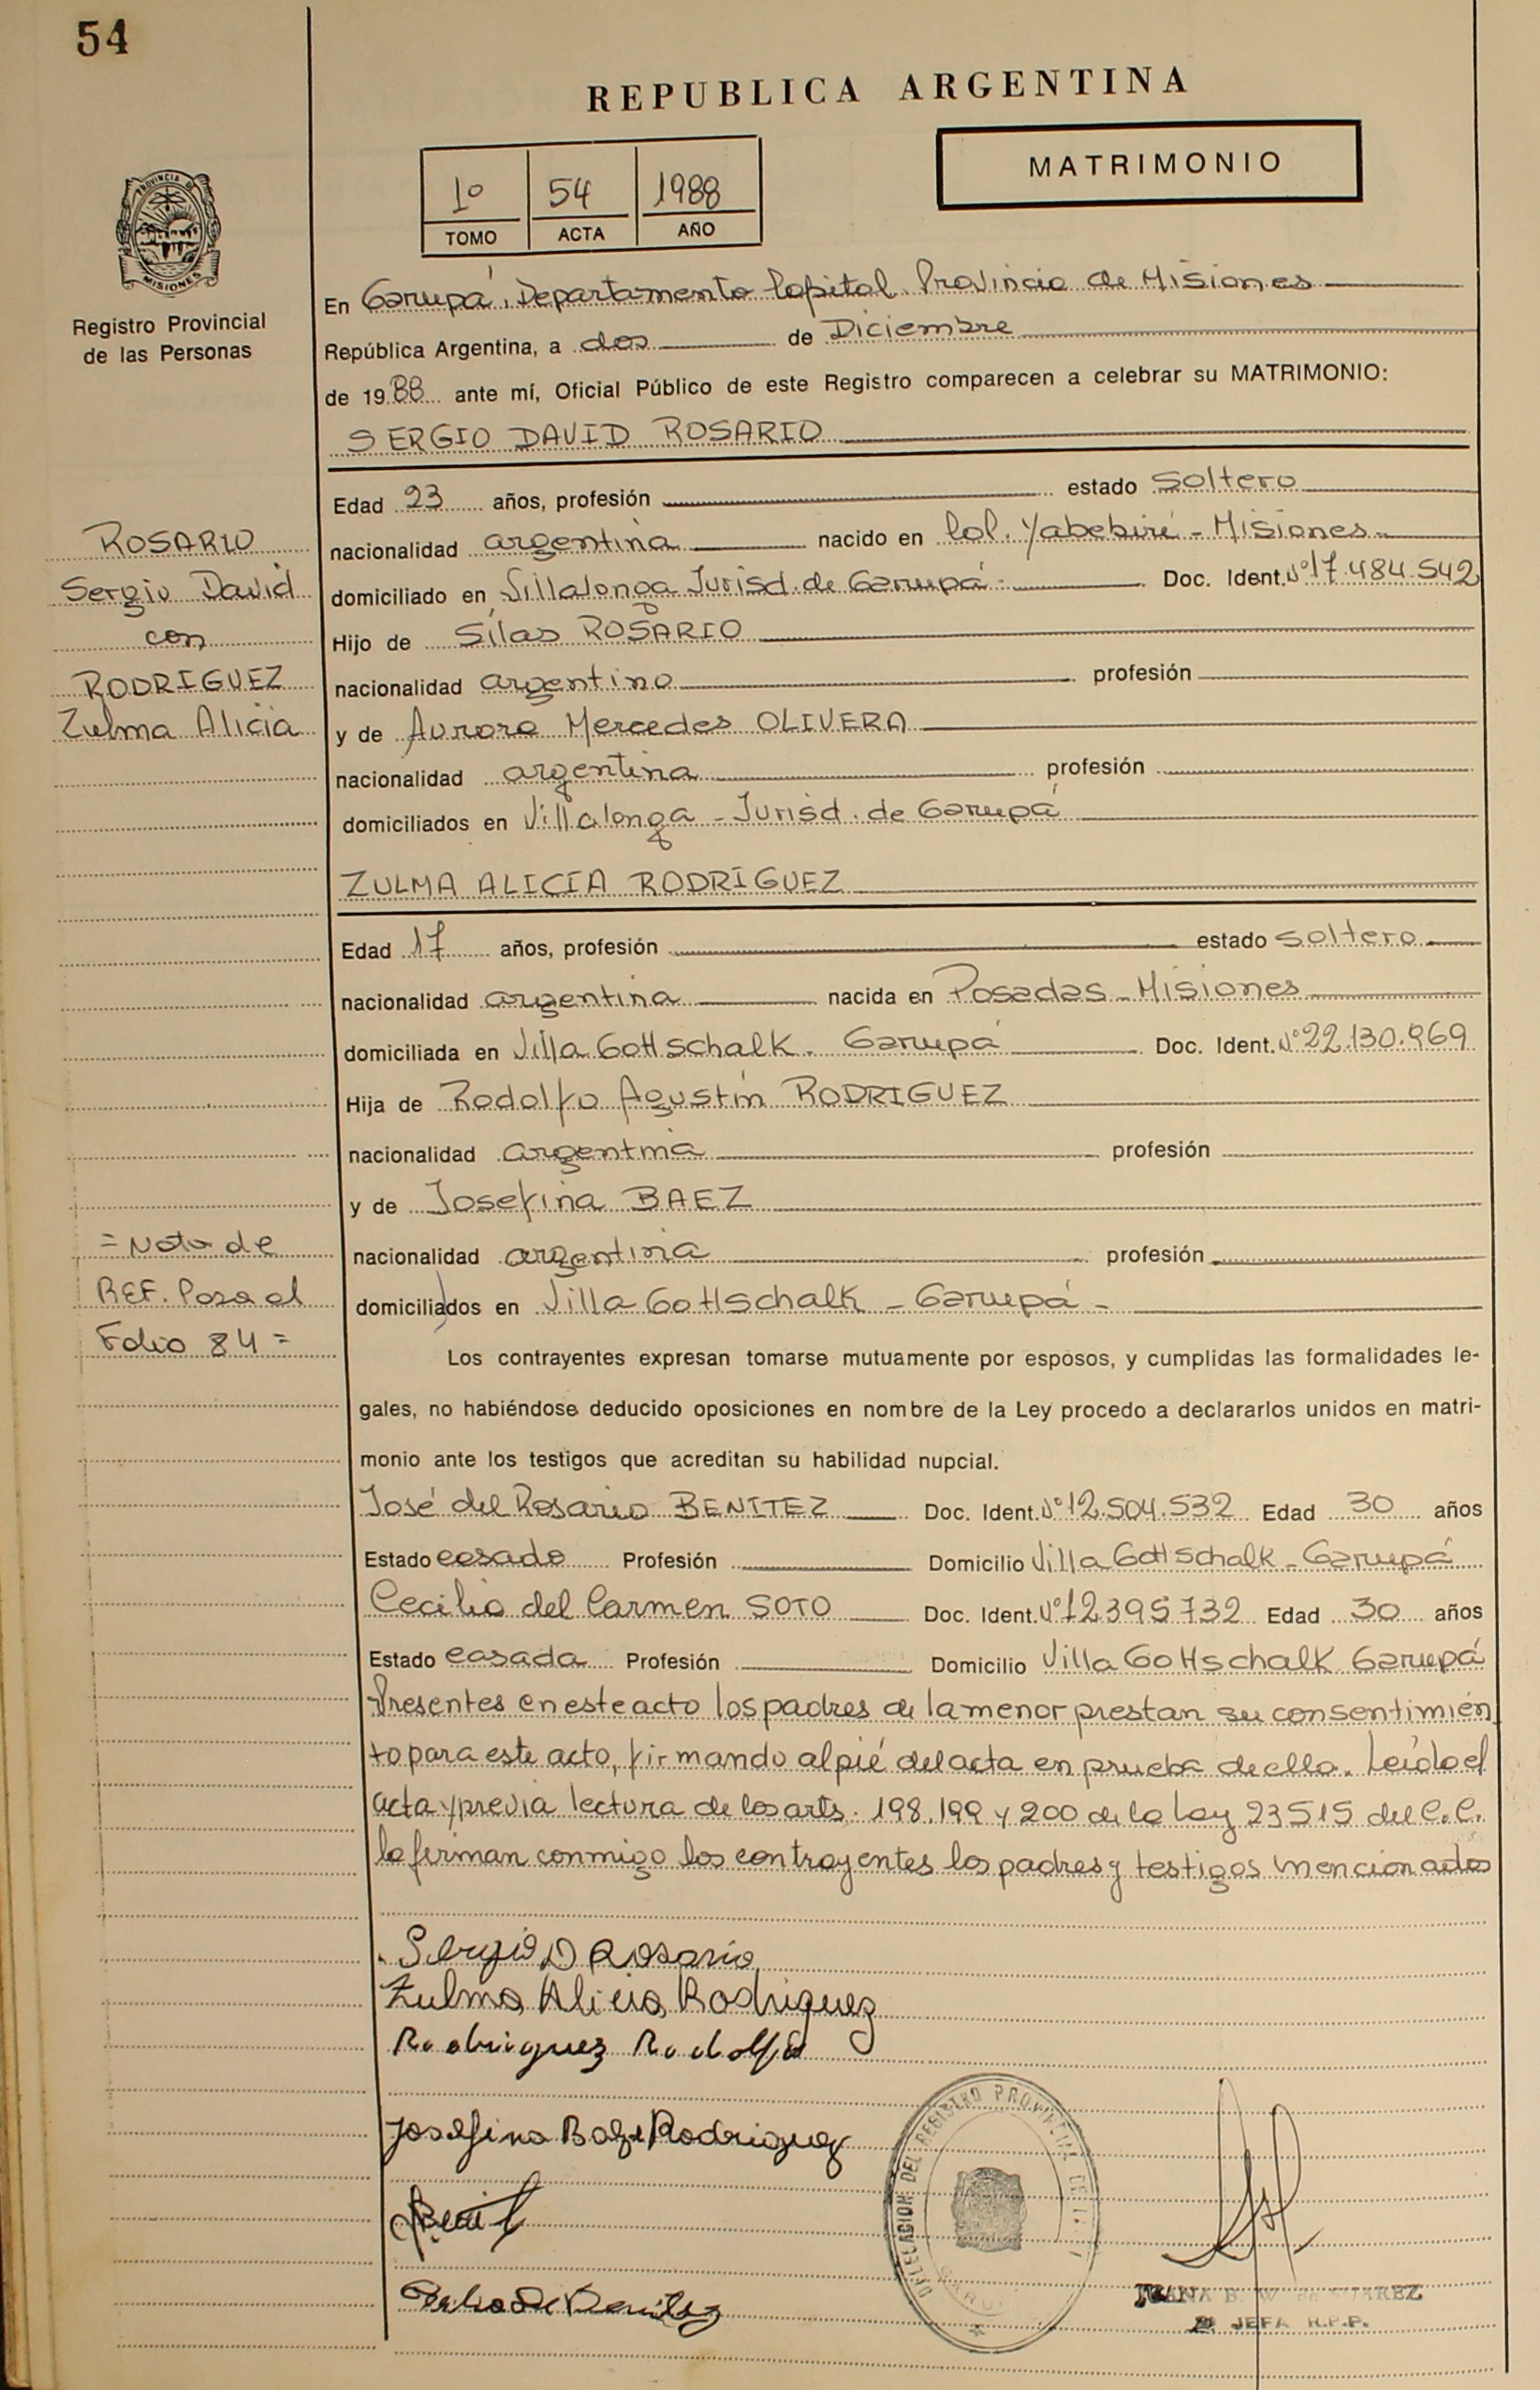 54
REPUBLICA ARGENTINA
1º 54 1988
TOMO ACTA AÑO
MATRIMONIO
PROVINCIA DE
MISIONES
Registro Provincial
de las Personas
En Garupá, Departamento Capital Provincia de Misiones
República Argentina, a dos de Diciembre
de 1988 ante mí, Oficial Público de este Registro comparecen a celebrar su MATRIMONIO:
SERGIO DAVID ROSARIO
Edad 23 años, profesión estado soltero
nacionalidad argentina nacido en Col. Yabebirí - Misiones
domiciliado en Villalonga Jurisd. de Garupá - Doc. Ident. Nº 17.484.542
Hijo de Silas ROSARIO
nacionalidad argentino profesión
y de Aurora Mercedes OLIVERA
nacionalidad argentina profesión
domiciliados en Villalonga - Jurisd. de Garupá
ROSARIO
Sergio David
con
RODRIGUEZ
Zulma Alicia
ZULMA ALICIA RODRIGUEZ
Edad 17 años, profesión estado soltero
nacionalidad argentina nacida en Posadas - Misiones
domiciliada en Villa Gottschalk. Garupá Doc. Ident. Nº 22.130.969
Hija de Rodolfo Agustín RODRIGUEZ
nacionalidad argentina profesión
y de Josefina BAEZ
nacionalidad argentina profesión
domiciliados en Villa Gottschalk - Garupá -
= Nota de
REF. Pasa al
Folio 84 =
Los contrayentes expresan tomarse mutuamente por esposos, y cumplidas las formalidades le-
gales, no habiéndose deducido oposiciones en nombre de la Ley procedo a declararlos unidos en matri-
monio ante los testigos que acreditan su habilidad nupcial.
José del Rosario BENITEZ Doc. Ident. Nº 12.504.532 Edad 30 años
Estado casado Profesión Domicilio Villa Gottschalk - Garupá
Cecilia del Carmen SOTO Doc. Ident. Nº 12395732 Edad 30 años
Estado casada Profesión Domicilio Villa Gottschalk Garupá
Presentes en este acto los padres de la menor prestan su consentimien
to para este acto, firmando al pié del acta en prueba de ello. Leída el
acta y previa lectura de los arts. 198, 199 y 200 de la Ley 23515 del C.C.
la firman conmigo los contrayentes los padres y testigos mencionados
Sergio D Rosario
Zulma Alicia Rodriguez
Rodriguez Rodolfo
Josefina Baez Rodriguez
DELEGACION DEL REGISTRO PROVINCIAL DE
JUANA B. W. de SUAREZ
JEFA R.P.P.